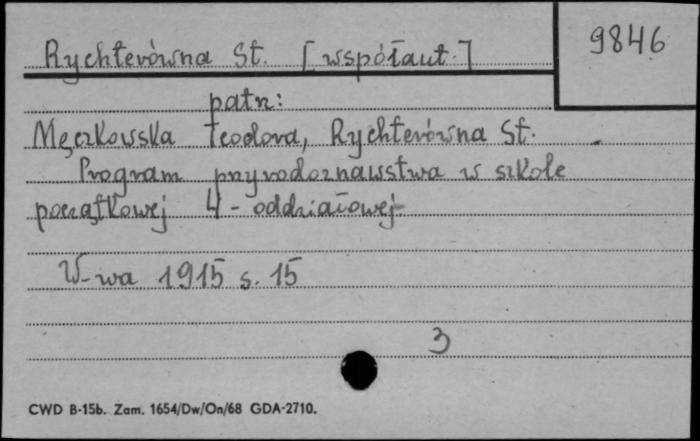 Rychterówna St. [współaut.]
9846
patrz:
Męczkowska Teodora, Rychterówna St.
Program przyrodoznawstwa w szkole
początkowej 4-oddziałowej
W-wa 1915 s. 15
3
CWD B-15b. Zam. 1654/Dw/On/68 GDA-2710.